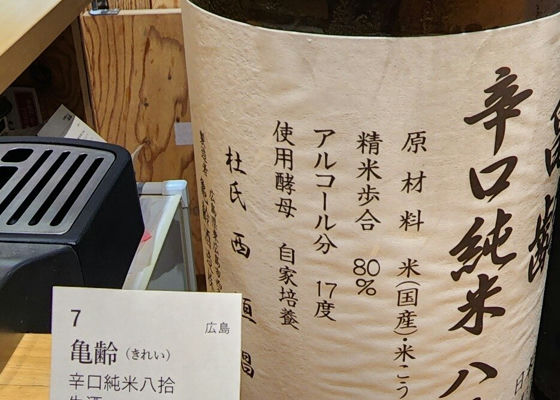 辛口純米八
原材料 米(国産)・米こう
精米歩合 80%
アルコール分 17度
使用酵母 自家培養
杜氏 西垣昌
7
広島
亀齢(きれい)
辛口純米八拾
生酒